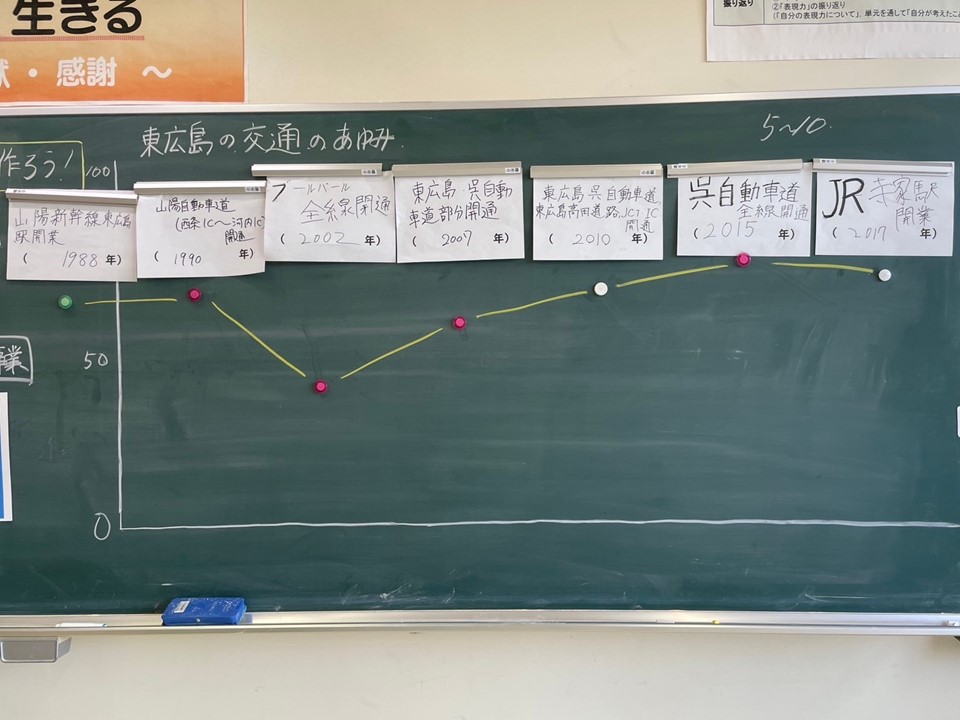 生きる
献・感謝 ～
振り返り
②「表現力」の振り返り
（「自分の表現力について」、単元を通して「自分が考えたこ
東広島の交通のあゆみ
5～10
作ろう！
100
山陽新幹線東広島
駅開業
( 1988 年)
山陽自動車道
(西条IC～河内IC)
開通
( 1990 年)
ブールバール
全線開通
( 2002 年)
東広島・呉自動
車道部分開通
( 2007 年)
東広島呉自動車道、
東広島高田道路、JCT IC
開通
( 2010 年)
呉自動車道
全線開通
( 2015 年)
JR寺家駅
開業
( 2017 年)
業
50
0